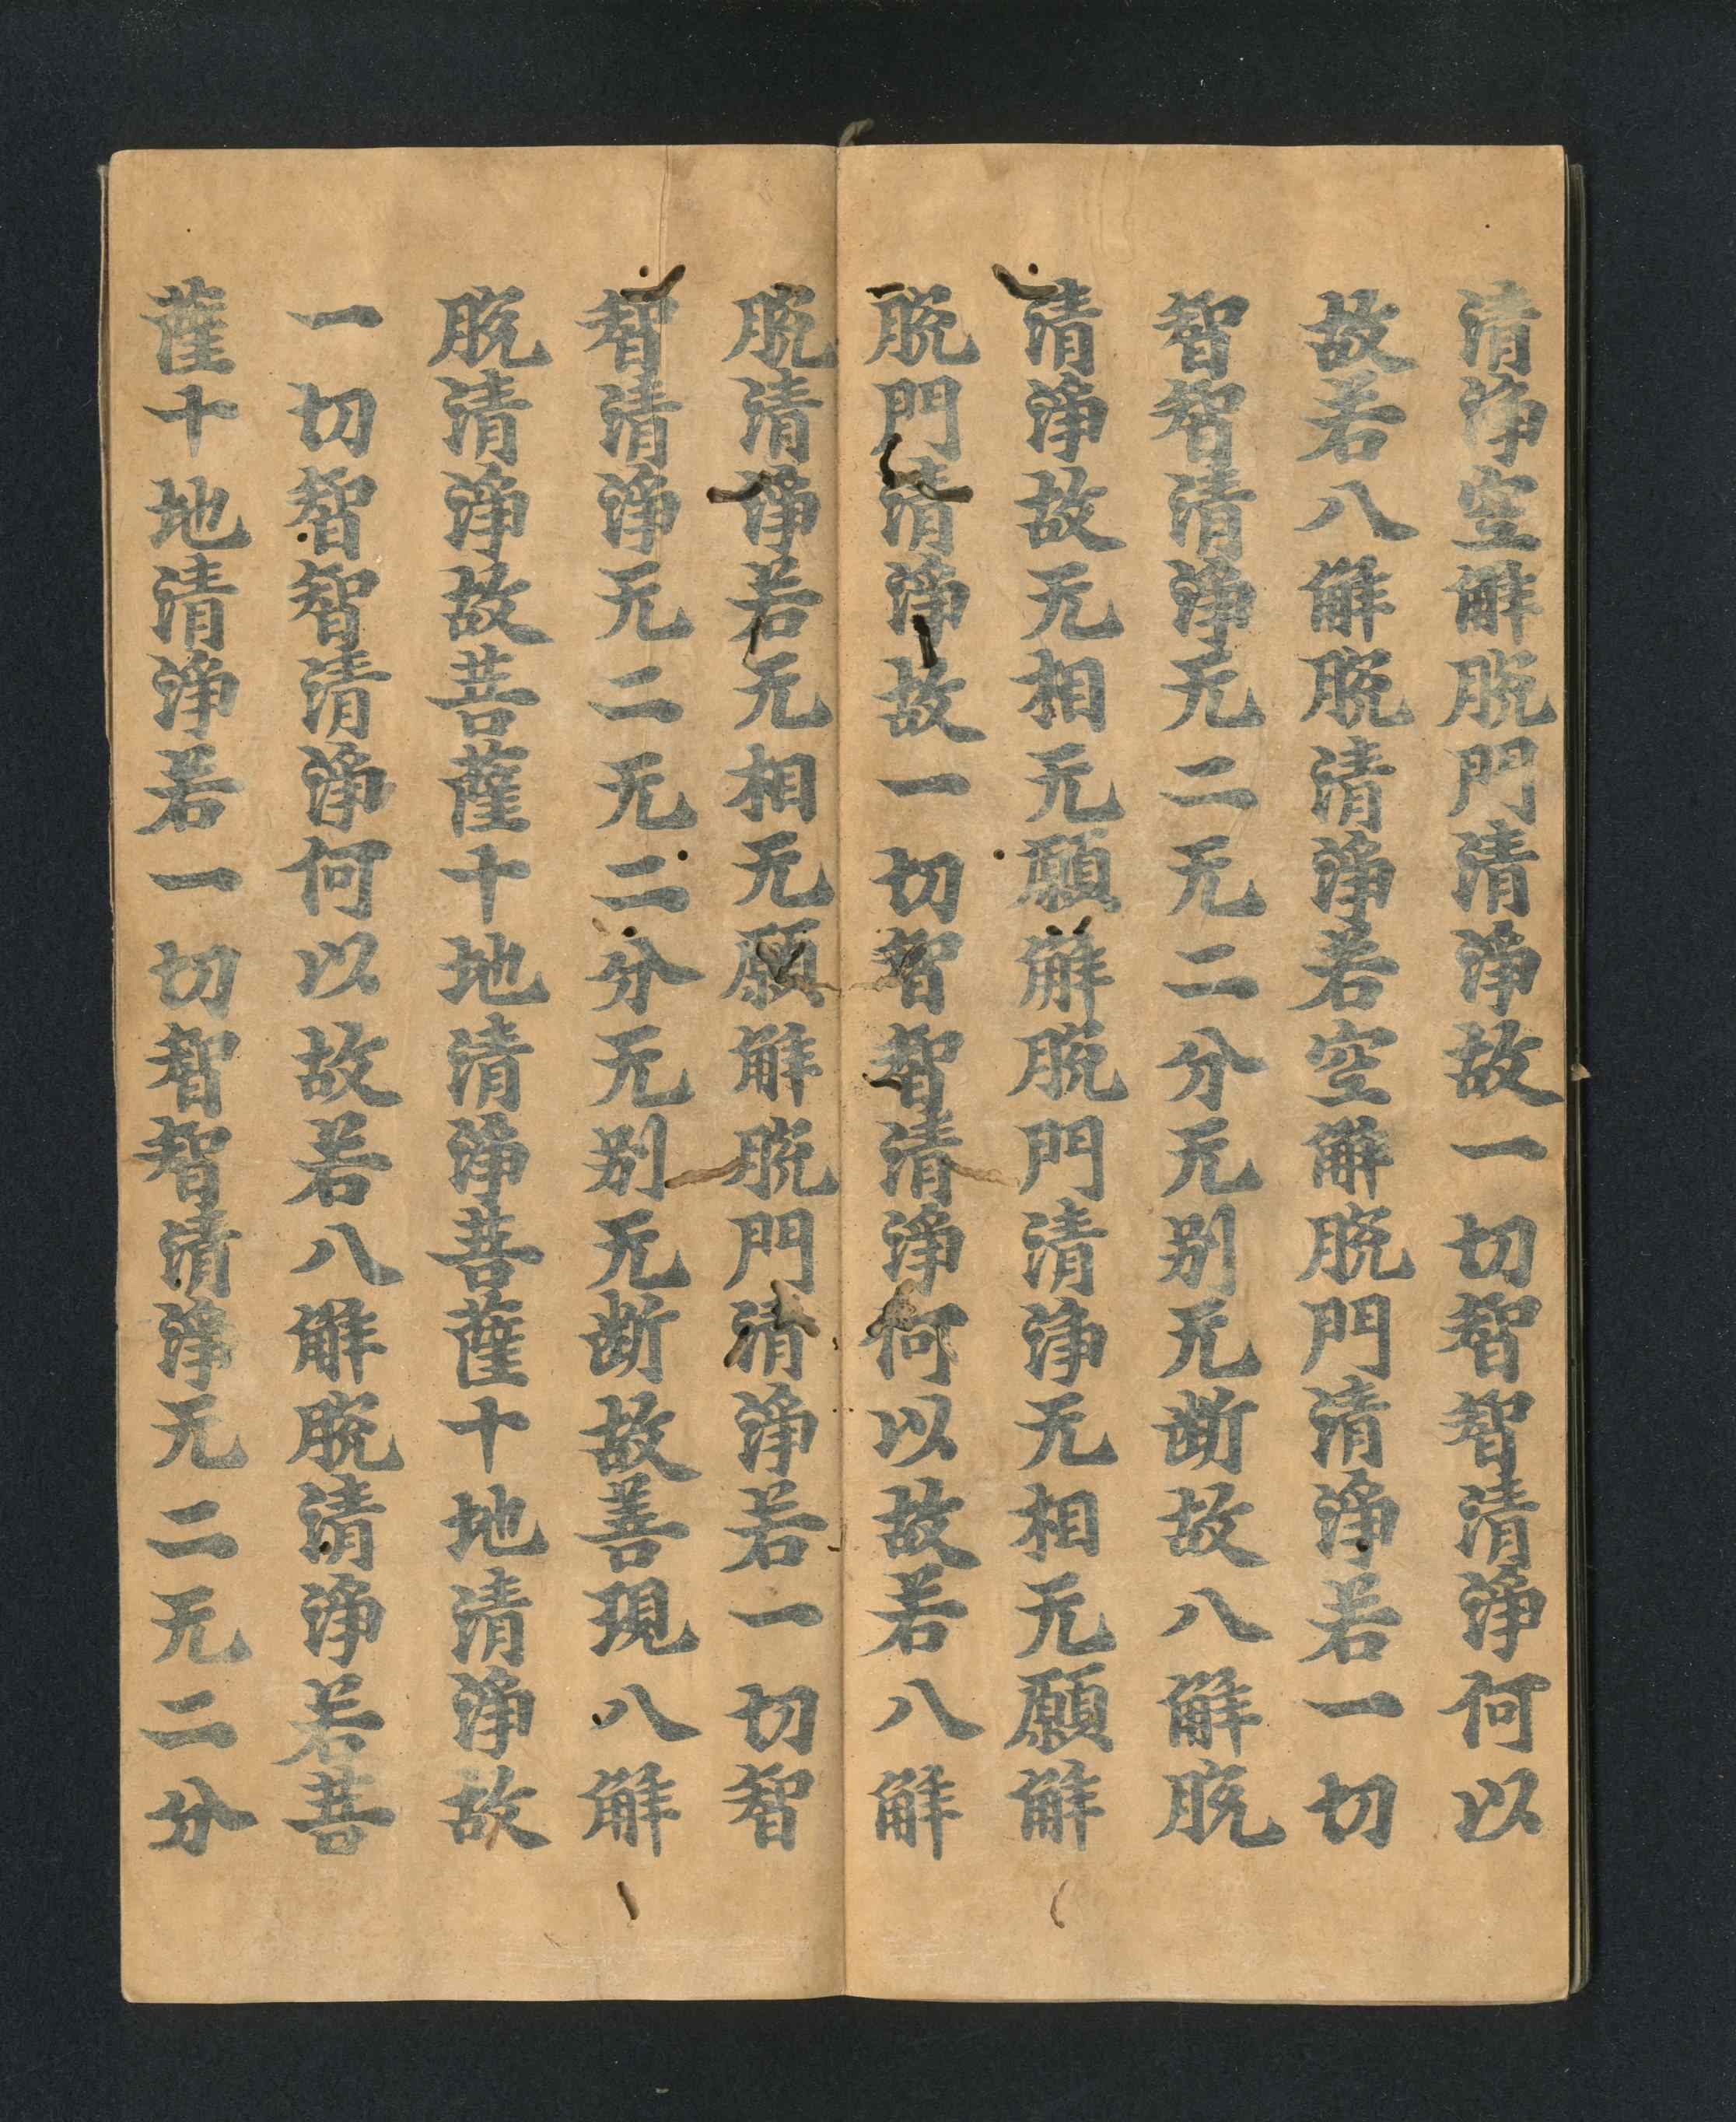 清淨空解脫門清淨故一切智智清淨何以
故若八解脫清淨若空解脫門清淨若一切
智智清淨无二无二分无别无断故八解脫
清淨故无相无願解脫門清淨无相无願解
脫門清淨故一切智智清淨何以故若八解
脫清淨若无相无願解脫門清淨若一切智
智清淨无二无二分无别无断故善現八解
脫清淨故菩薩十地清淨菩薩十地清淨故
一切智智清淨何以故若八解脫清淨若菩
薩十地清淨若一切智智清淨无二无二分